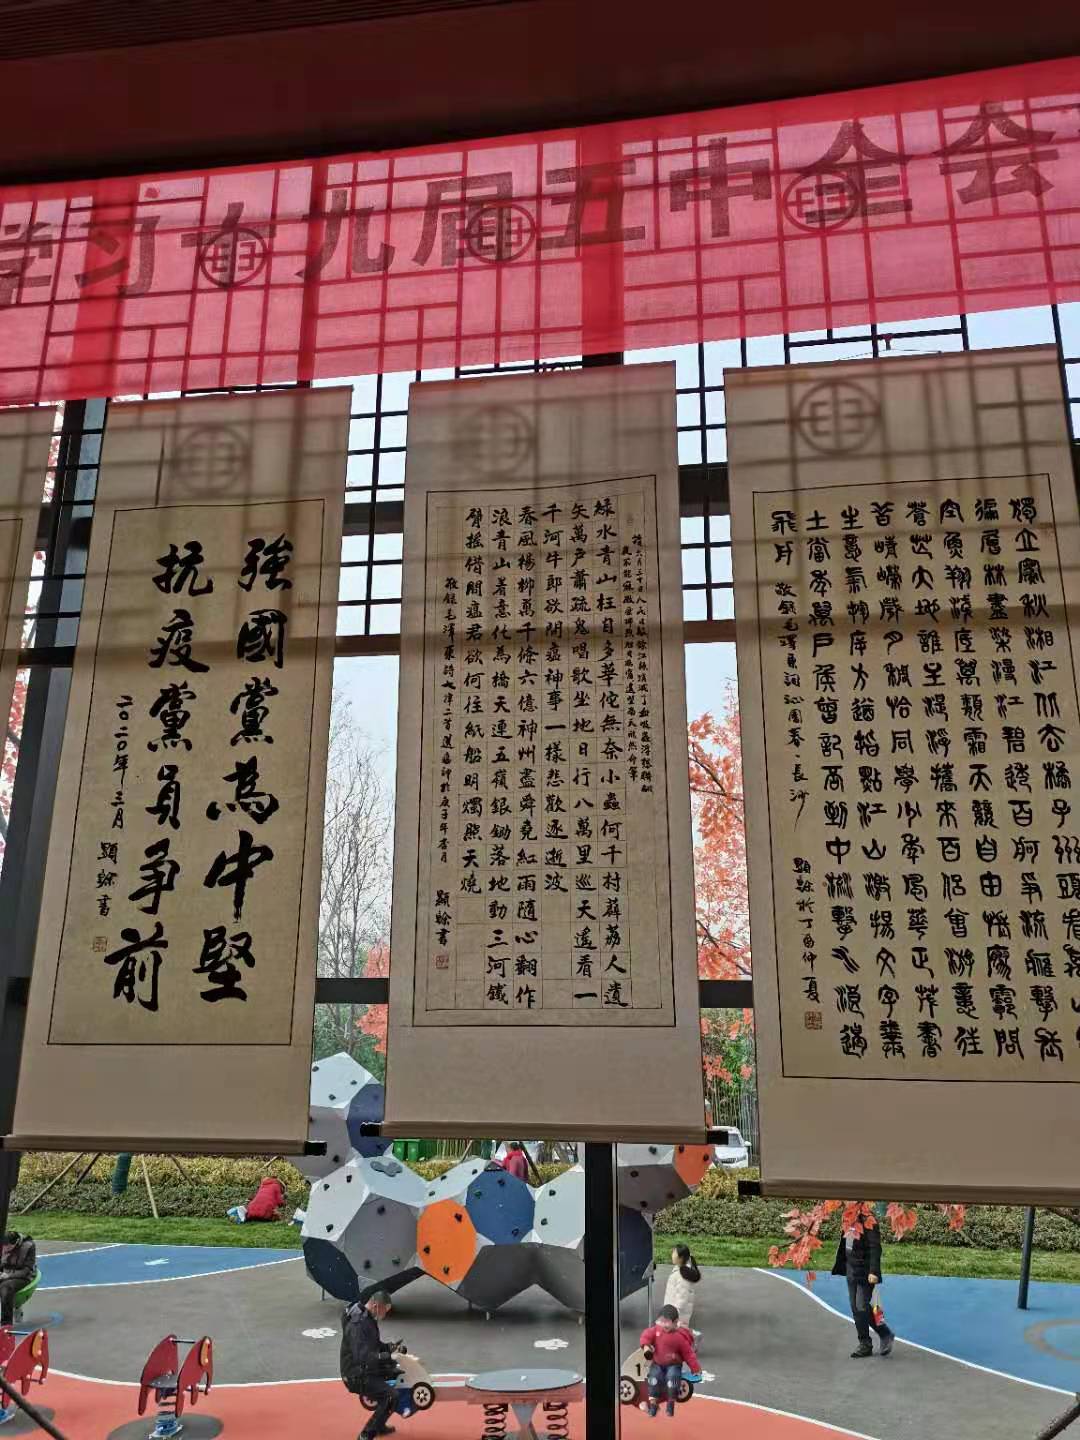 学习十九届五中全会
獨立寒秋湘江北去橘子洲頭看萬山
徧層林盡染漫江碧透百舸爭流鷹擊長
空魚翔淺底萬類霜天競自由悵寥廓問
蒼茫大地誰主浮沉攜來百侶曾游憶往
昔崢嶸歲月稠恰同學少年風華正茂書
生意氣揮斥方遒指點江山激揚文字糞
土當年萬戶侯曾記否到中流擊水浪遏
飛舟 敬錄毛澤東詞沁園春·長沙
於丁酉仲夏
讀六月三十日人民日報餘江縣消滅了血吸蟲浮想聯翩
夜不能寐微風拂煦旭日臨窗遙望南天欣然命筆
綠水青山枉自多華佗無奈小蟲何千村薜荔人遺
矢萬戶蕭疏鬼唱歌坐地日行八萬里巡天遙看一
千河牛郎欲問瘟神事一樣悲歡逐逝波
春風楊柳萬千條六億神州盡舜堯紅雨隨心翻作
浪青山着意化為橋天連五嶺銀鋤落地動三河鐵
臂搖借問瘟君欲何往紙船明燭照天燒
敬錄毛澤東詩七律二首送瘟神於庚子年杏月
強國黨為中堅
抗疫黨員爭前
二〇二〇年三月
1